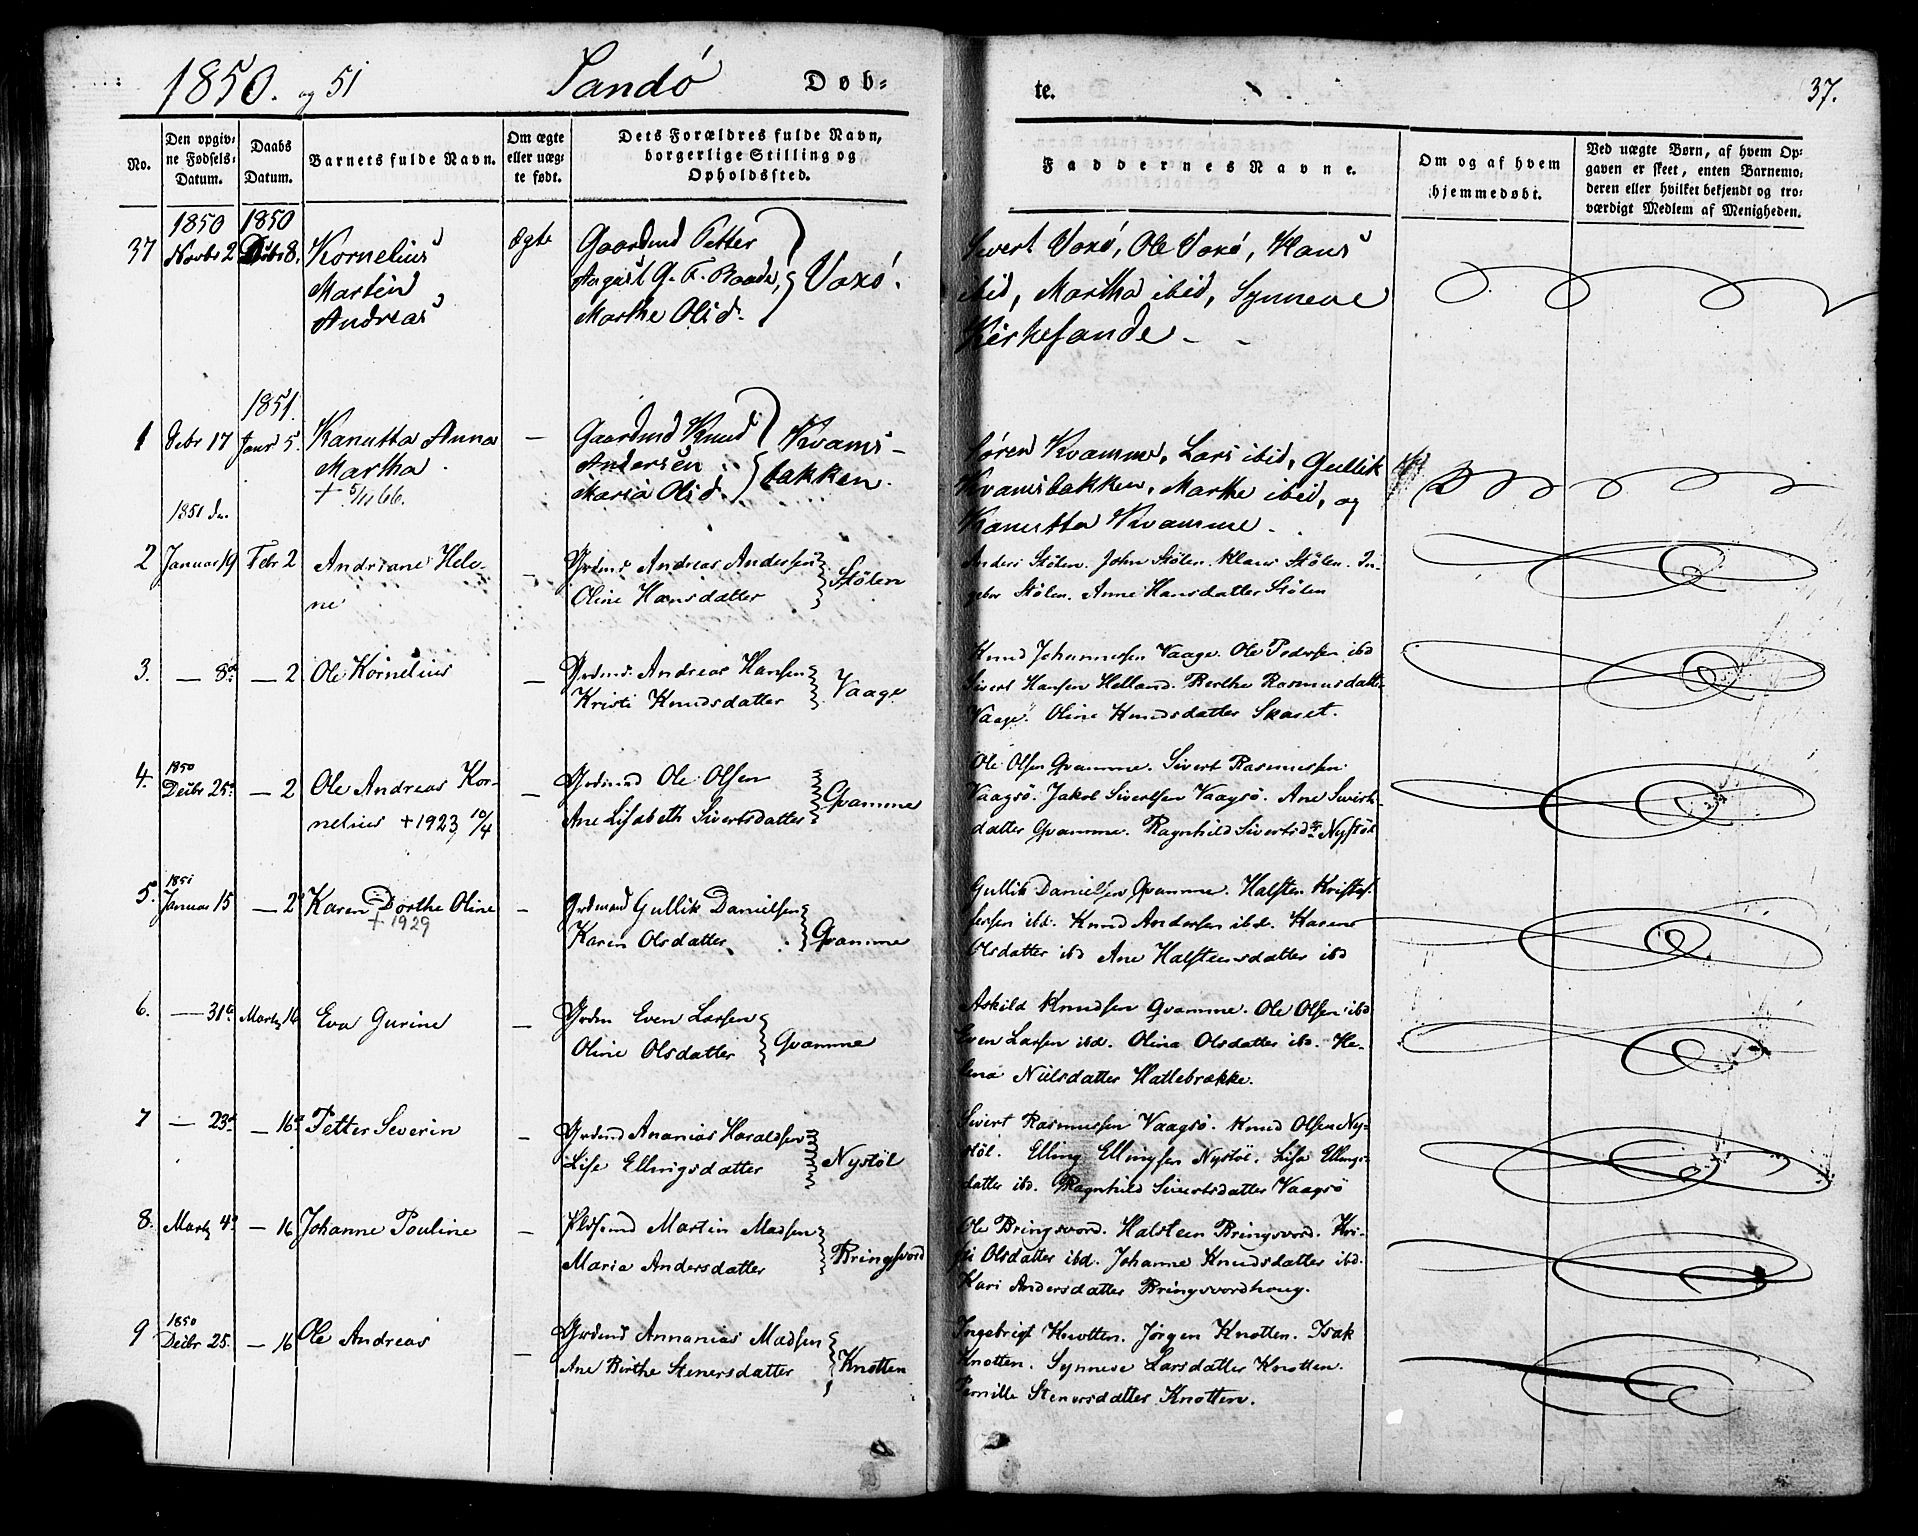 1850. og 51 Sandö Døb-
te. 37.
No.
Den opgiv-
ne Fødsels-
Datum.
Daabs
Datum.
Barnets fulde Navn.
Om ægte
eller uæg-
te født.
Dets Forældres fulde Navn,
borgerlige Stilling og
Opholdssted.
Faddernes Navne.
Om og af hvem
hjemmedøbt.
Ved uægte Børn, af hvem Op-
gaven er skeet, enten Barnemo-
deren eller hvilket bekjendt og tro-
værdigt Medlem af Menigheden.
1850 1850
37 Novbr 2 Decbr 8. Kornelius
Martin
Andreas
Ægte
Gaardmd Petter
August G. F. Baade,
Marthe Olsd.
Voxö.
Sivert Voxö, Ole Voxö, Hans
ibid, Martha ibid, Synneve
Kirkesande -
1851.
1 Debr 17 Janr 5. Kanutta Anna
Martha.
+ 5/11 66.
-
Gaardmd Knud
Andersen
Maria Olsd.
Kvams-
bakken.
Søren Kvamme, Lars ibid, Gullik
Kvamsbakken, Marthe ibid, og
Kanutta Kvamme.
1851
2 Januar 19 Febr 2 Andriane Hele-
ne
-
Grdmd Andreas Andersen
Oline Hansdatter
Stölen
Anders Stölen. John Stölen. Klaus Stölen. In-
gebor Stölen. Anne Hansdatter Stölen
3. - 8de - 2 Ole Kornelius
-
Grdmd. Andreas Hansen
Kristi Knudsdatter
Vaage
Knud Johannessen Vaage. Ole Pedersen ibd
Sivert Hansen Helland. Berthe Rasmusdatter
Vaage. Oline Knudsdatter Skaret.
4. 1850
Decbr 25de - 2 Ole Andreas Kor-
nelius +1923 10/4
-
Grdmnd Ole Olsen
Ane Lisabeth Sivertsdatter
Gvamme
Ole Olsen Gvamme. Sivert Rasmussen
Vaagsö. Jakob Sivertsen Vaagsö. Ane Siverts-
datter Gvamme. Ragnhild Sivertsdtr Nystöl
5. 1851
Januar 15 - 2 Karen Dorthe Oline
+ 1929
-
Grdmand Gullik Danielsen
Karen Olsdatter
Gvamme
Gullik Danielsen Gvamme. Halsten Kristof-
fersen ibd. Knud Andersen ibd. Karen
Olsdatter ibd Ane Halsteensdatter ibd
6. - 31te Marts 16 Eva Gurine
-
Grdm Even Larsen
Oline Olsdatter
Gvamme
Askild Knudsen Gvamme. Ole Olsen ibd
Even Larsen ibd. Olina Olsdatter ibd. He-
lena Nielsdatter Hattebrække.
7 - 23de - 16de Petter Severin
-
Grdmd Ananias Haraldsen
Lise Ellingsdatter
Nystöl
Sivert Rasmussen Vaagsö. Knud Olsen Ny-
stöl. Elling Ellingsen Nystöl. Lisa Ellings-
datter ibd. Ragnhild Sivertsdatter Vaagsö
8. Marts 4de - 16 Johanne Pouline
-
Plsmd Martin Madsen
Maria Andersdatter
Bringsvord
Ole Bringsvord. Halsteen Bringsvord. Kri-
sti Olsdatter ibd. Johanne Knudsdatter ibd.
Kari Andersdatter Bringsvordhoug.
9 1850
Decbr 25. - 16 Ole Andreas
-
Grdmd Annanias Madsen
Ane Birthe Stenersdatter
Knotten
Ingebrigt Knotten. Jörgen Knotten. Isak
Knotten. Synneve Larsdatter Knotten.
Pernille Stenersdatter Knotten.